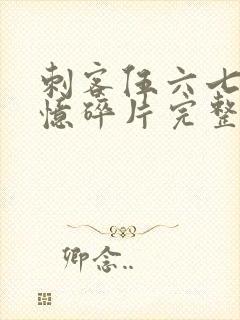 刺客伍六七
憶碎片完整
卿念..